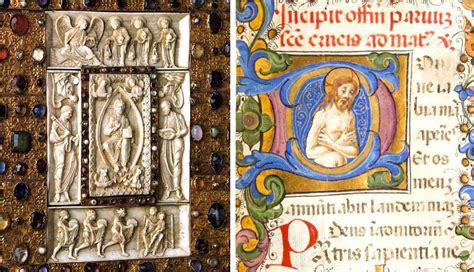 Incipit offm paruuz
scē crucis ad mat
Omine
la bia m
apies
Et os
meu
Annūti abit laudem tuam
Deus in adiutoriu
Patris sapientia